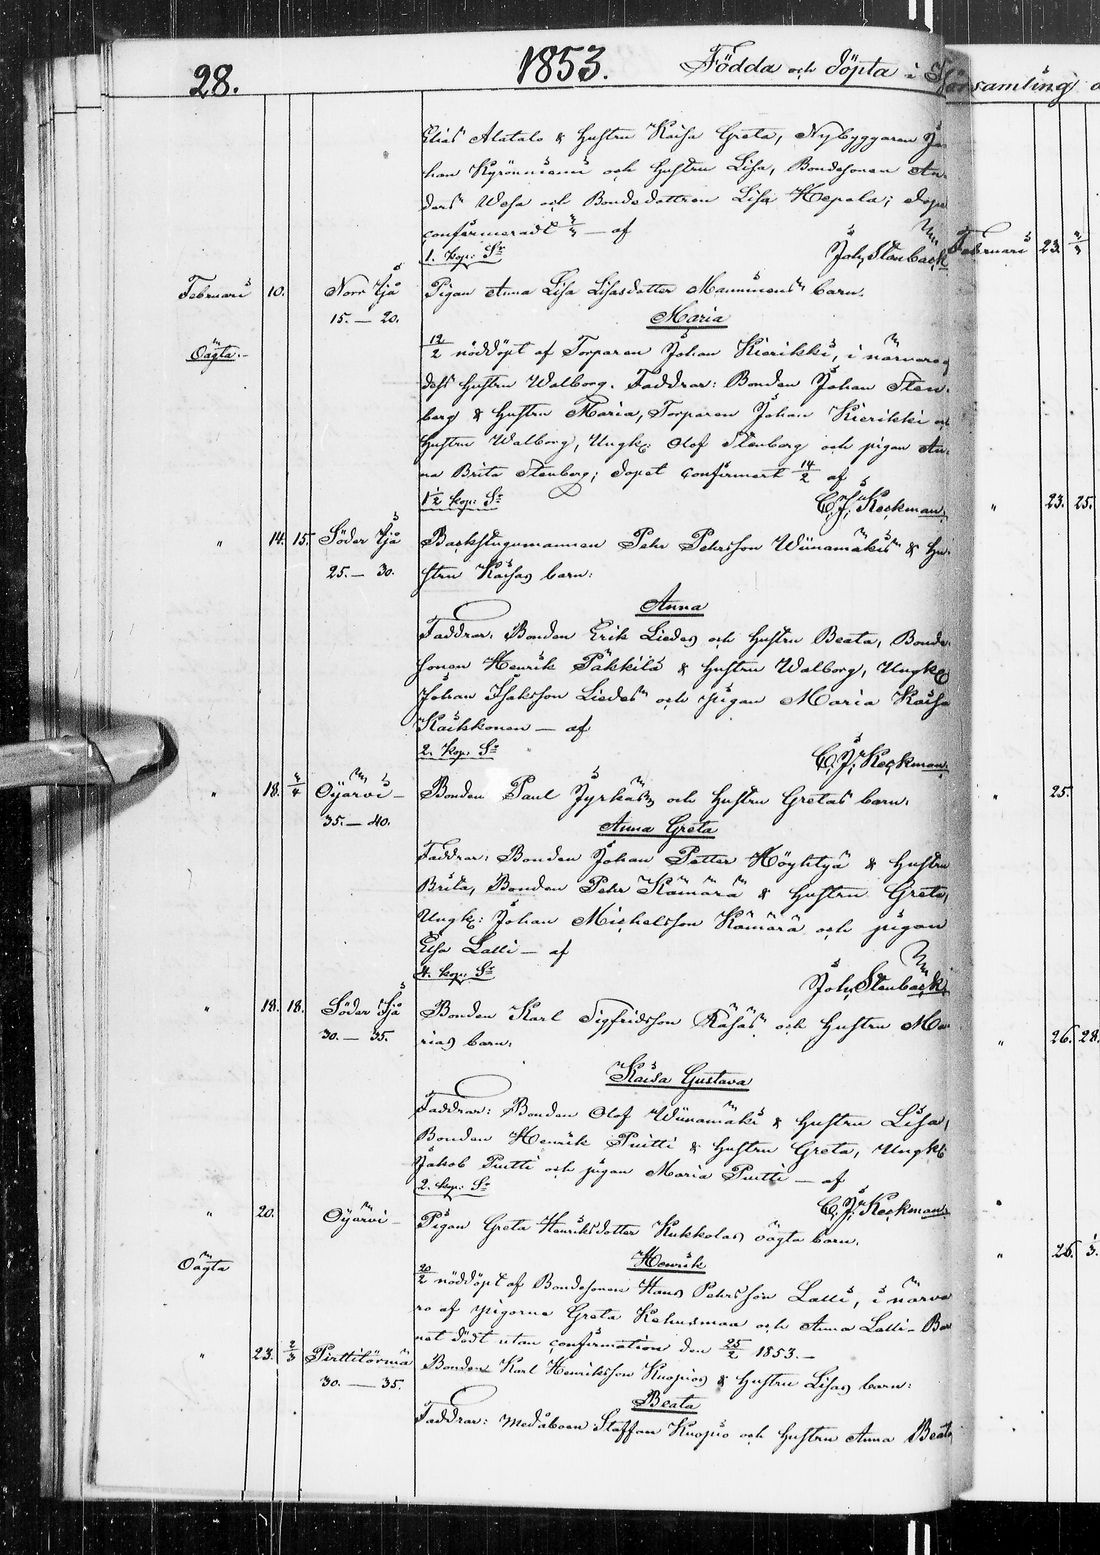 28. 1853. Födda och döpta i
Församling
Elias Alatalo & hustru Kaisa Greta, Nybyggaren Jo-
han Kyrönniemi och hustru Lisa, Bondesonen An-
ders Wesa och Bondedottren Lisa Hepola; dopet
confirmeradt — af
1. kop. Sr
Joh. Stenbäck
Februari 23.
Februari 10. Norr Ijå Pigan Anna Lisa Lisasdotter Manninens barn.
15. — 20. Maria
Oägta.
12/2 nöddöpt af Torparen Johan Kierikki, i närvaro af
dess hustru Walborg. Faddrar: Bonden Johan Sten-
berg & hustru Maria, Torparen Johan Kierikki och
hustru Walborg, Ungk. Olof Stenberg och pigan An-
na Brita Stenberg; dopet confirmert 14/2 af
1 1/2 kop. Sr
C. J. Keckman.
" 23. 25.
" 14. 15. Söder Ijå Backstugumannen Pehr Pehrsson Wiinamäkis & hu-
25. — 30. stru Kaisas barn:
Anna
Faddrar: Bonden Erik Liedes och hustru Beata, Bonde-
sonen Henrik Päkkilä & hustru Walborg, Ungk.
Johan Isaksson Liedes och pigan Maria Kaisa
Kaikkonen — af
2. kop. Sr
C. J. Keckman.
" 18. Oijärvi — Bonden Paul Jyrkäs och hustru Gretas barn:
" 25.
35. — 40. Anna Greta
Faddrar: Bonden Johan Petter Höyhtyä & hustru
Brita, Bonden Pehr Kämärä & hustru Greta,
Ungk: Johan Michelsson Kämärä och pigan
Elsa Lalli — af
4. kop. Sr
Joh. Stenbäck
" 18. 18. Söder Ijå Bonden Karl Sigfridsson Räsäs och hustru Ma-
30. — 35. rias barn:
" 26. 28.
Kaisa Gustava
Faddrar: Bonden Olof Wiinamäki & hustru Lisa,
Bonden Henrik Puitti & hustru Greta, Ungk.
Jakob Puitti och pigan Maria Puitti — af
2. kop. Sr
C. J. Keckman.
" 20. Oijärvi — Pigan Greta Henriksdotter Kukkolas oägta barn.
Oägta Henrik
" 26. 1/3
20/2 nöddöpt af Bondesonen Hans Pehrsson Lalli, i närva-
ro af pigorna Greta Kehusmaa och Anna Lalli — Bar-
net dödt utan confirmation den 25/2 1853. —
" 23. 2/3 Pirttitörmä Bonden Karl Henriksson Kuopios & hustru Lisas barn:
30. — 35. Beata
Faddrar: Medåboen Staffan Kuopio och hustru Anna Beata